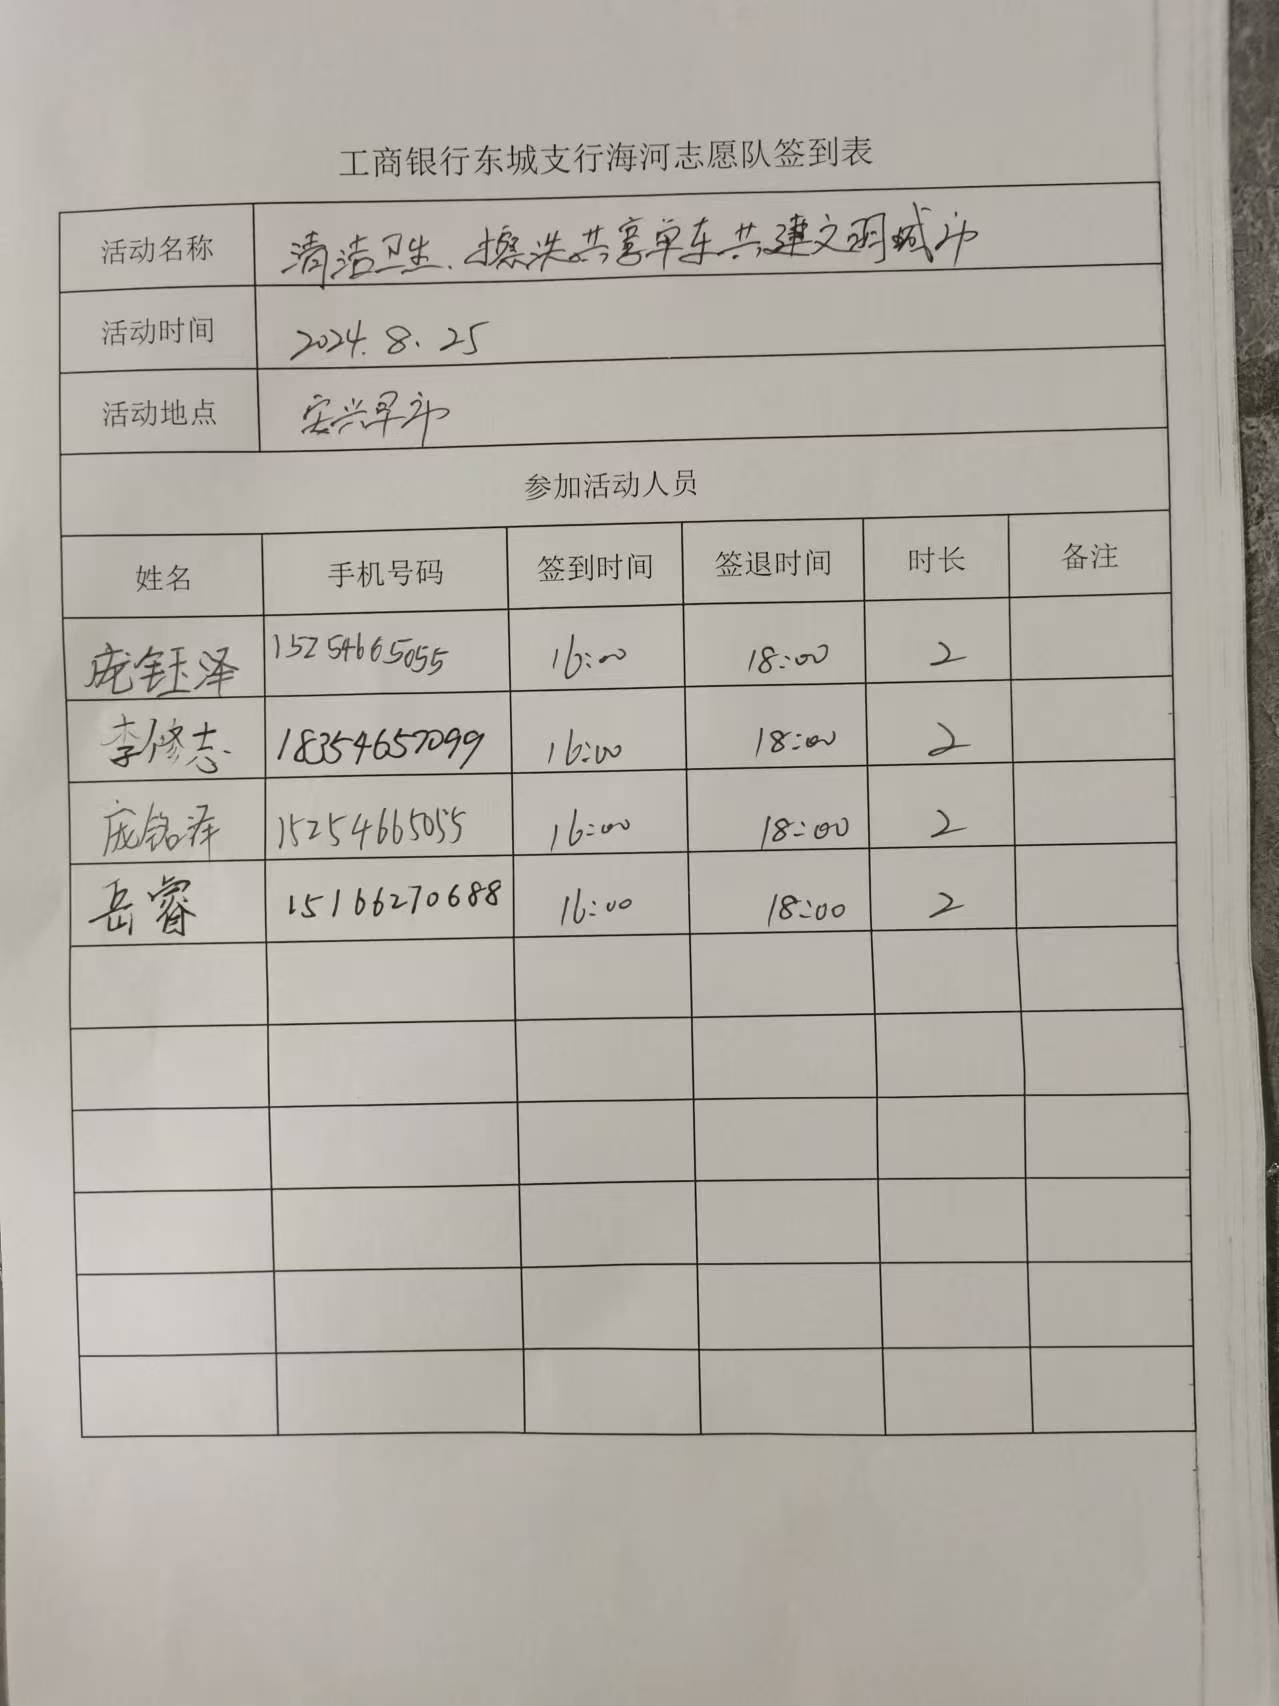 工商银行东城支行海河志愿队签到表
活动名称 清洁卫生、擦洗共享单车共建文明城市
活动时间 2024.8.25
活动地点 安兴早市
参加活动人员
姓名 手机号码 签到时间 签退时间 时长 备注
庞钰泽 15254665055 16:00 18:00 2
李修志 18354657099 16:00 18:00 2
庞铭泽 15254665055 16:00 18:00 2
岳睿 15166270688 16:00 18:00 2